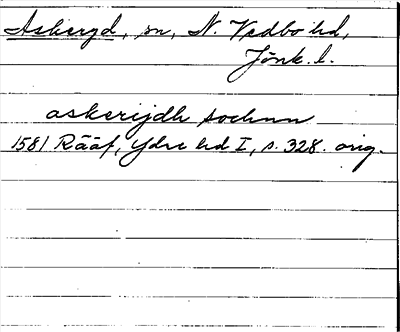 Askeryd, sn, N. Vedbo hd,
Jönk. l.
askerijdh sochnn
1581 Rääf, Ydre hd I, s. 328. orig.